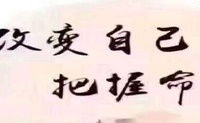 改变自己
把握命